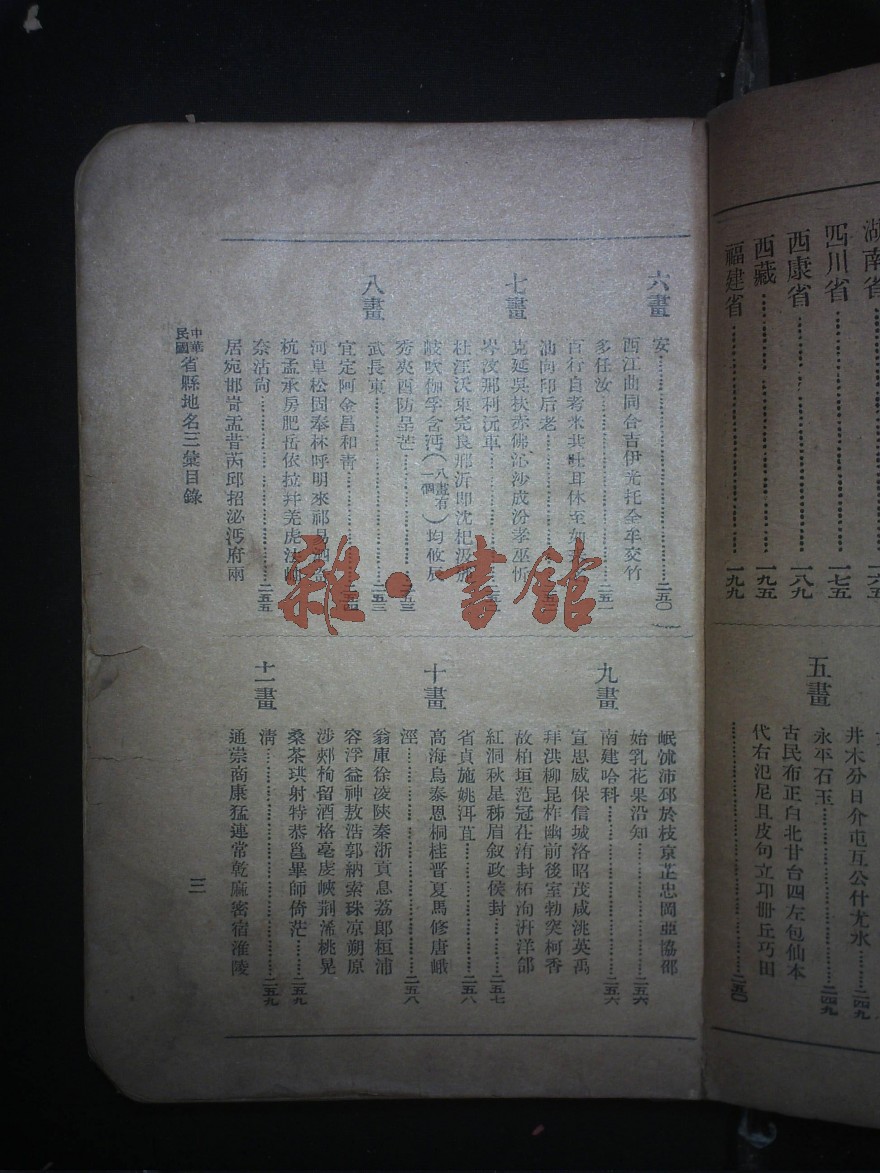 湖南省
一六五
四川省
一七五
西康省
一八九
西藏
一九五
福建省
一九九
井木分日介屯互公什尤水
二四九
永平石玉
二四九
五畫
古民布正白北甘台四左包仙本
代右氾尼且皮句立印冊丘巧田
二五〇
六畫
安
二五〇
西江曲同合吉伊光托全牟交竹
多任汝
二五一
百行自考米共吐耳休至如
汕向印后老
七畫
克延吳扶赤佛沁沙成汾孝巫忻
岑汶那利沅車
杜汪沃束完良邢沂即沈杞汲
岐吹伽孚含沔(八畫有一個)均攸辰
秀夾酉防呈芒
二五三
八畫
武長東
二五三
宜定阿金昌和青
河阜松固奉林呼明來祁易
杭孟承房肥岳依拉幷羌虎法
奈沾尙
二五五
居宛邯岢盂昔芮邱招泌沔府兩
岷沭沛邳於枝京芷忠岡亞協邵
二五六
始乳花果沿知
九畫
南建哈科
二五六
宣思威保信城洛昭茂咸洮英禹
拜洪柳昆柞幽前後室勃突柯香
故柏垣范冠在洧封柘洵洴洋郃
紅洞秋星秭眉叙政侯封
二五七
省貞施姚洱苴
二五八
十畫
高海烏泰恩桐桂晋夏馬修唐峨
涇
二五八
翁庫徐凌陝秦浙貢息荔郎桓浦
容浮益神敖浩郭納索珠凉朔原
涉郟栒留酒格亳虔峽荆桃晃
桑茶珙射特恭邕畢師倚茫
二五九
十一畫
淸
二五九
通崇商康猛連常乾麻密宿淮陵
中華民國省縣地名三彙目錄
三
雜·書館